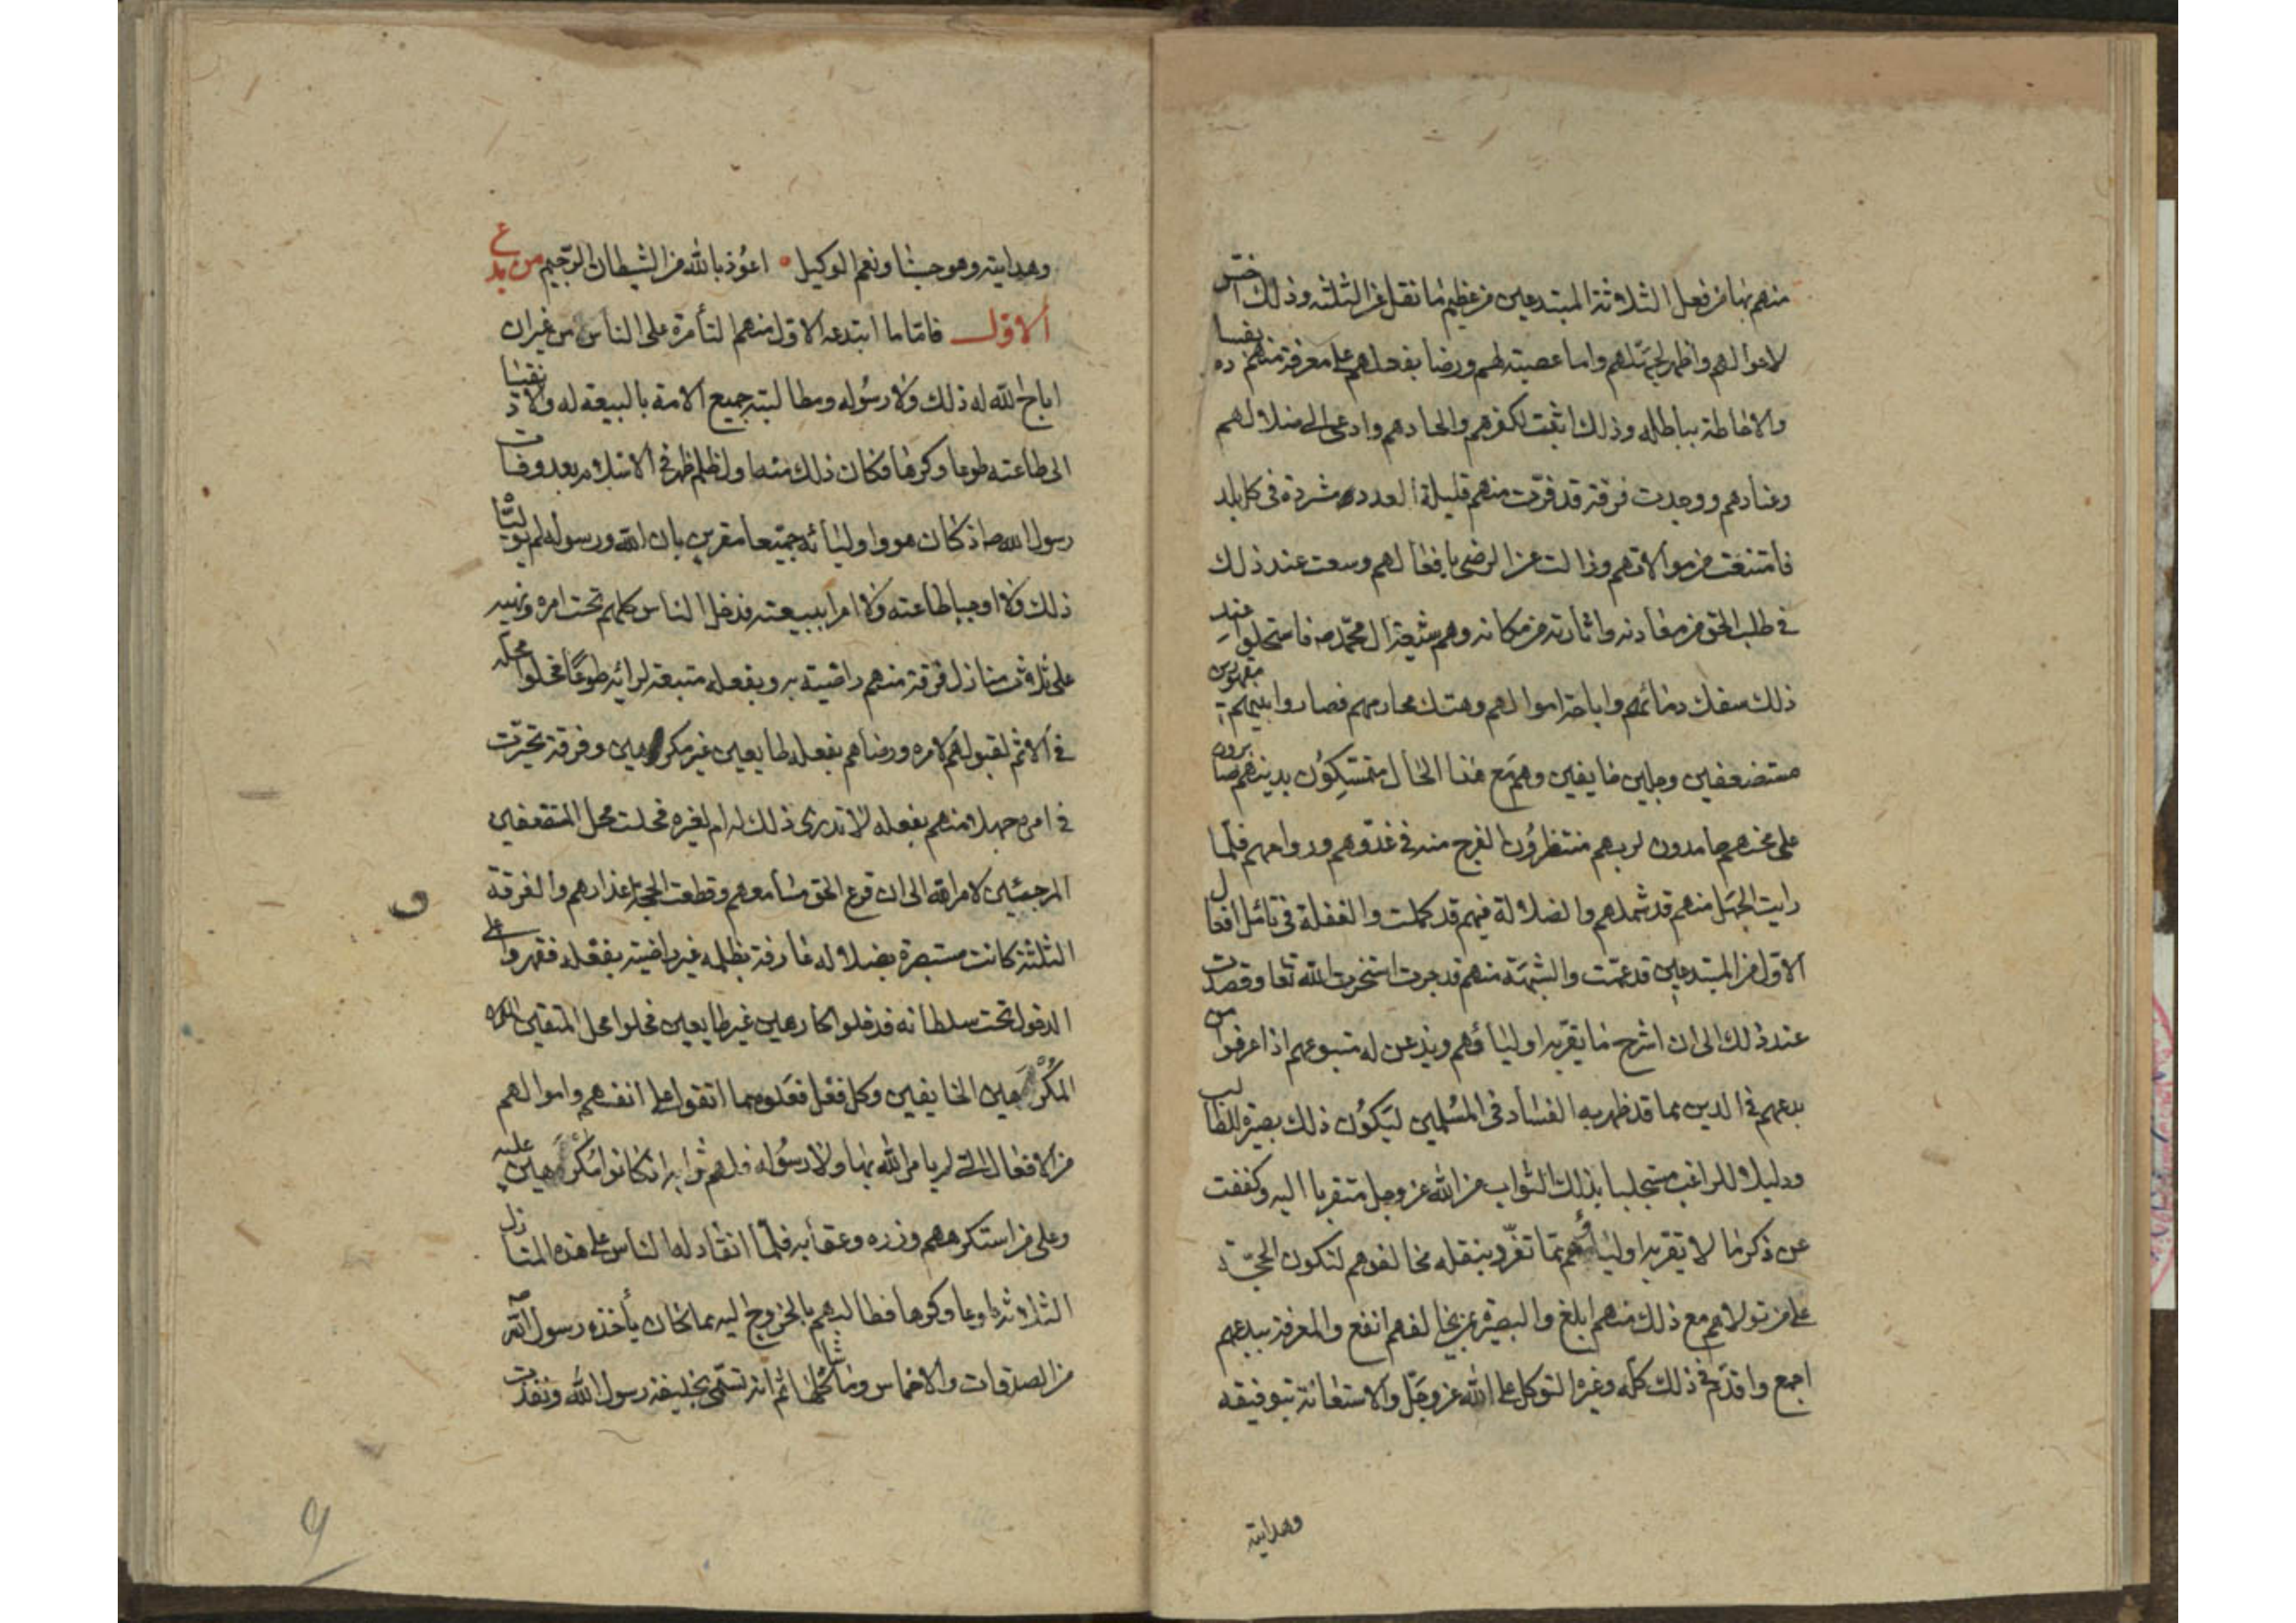 منهم بها من فعل الثلاثة المبتدعين من عظيم ما نقل عن الثلثة وذلك اختى
لاعوالهم واظهر لجهلهم واما عصبته لهم ورضا بفعلهم على معرفة منهم ده بفسا
والاحاطة بباطله وذلك اثبت لكفرهم والحادهم وادعى الى ضلالهم
وعنادهم ووجدت فرقة قد فرّت منهم قليلة العدد مشردة فى كل بلد
فامتنعت من موالاتهم وزالت عن الرضى بافعالهم وسعت عند ذلك
فى طلب الحق من معادنه واثارته من مكانه وهم شيعة ال محمد ص فاستحلوا عند
ذلك سفك دمائهم واباحة اموالهم وهتك محارمهم فصاروا بينهم مقهورين
مستضعفين وجلين خايفين وهم مع هذا الحال متمسكون بدينهم صابرون
على محنهم حامدون لربهم منتظرون الفرج منه فى غدوهم ورواحهم فلما
رايت الجهل منهم قد شملهم والضلالة فيهم قد كملت والغفلة فى تامل افعال
الاول من المبتدعين قد عمّت والشبهة منهم قد جرت استخرت الله تعا وقصدت
عند ذلك الى ان اشرح ما يقرّ به اولياؤهم ويذعن له متبوعهم اذا عرفوا من
بدعهم فى الدين مما قد ظهر به الفساد فى المسلمين ليكون ذلك بصيرة للطالب
ودليلا للراغب مستجلبا بذلك الثواب من الله عز وجل متقربا اليه وكففت
عن ذكر ما لا يقر به اولياؤهم مما تفرّد بنقله مخالفوهم لتكون الحجّة
على من تولاهم مع ذلك منهم ابلغ والبصيرة بمن يخالفهم انفع والمعرفة ببدعهم
اجمع واقدّم فى ذلك كله وغيره التوكل على الله عز وجل والاستعانة بتوفيقه
وهدايته
وهدايته وهو حسبنا ونعم الوكيل اعوذ بالله من الشيطان الرجيم من بدع
الاول فاما ما ابتدعه الاول منهما لتأمره على الناس من غير ان
اباح الله له ذلك ولا رسوله ومطالبته جميع الامة بالبيعة له والانقياد
الى طاعته طوعا وكرها فكان ذلك منه اول ظلم ظهر فى الاسلام بعد وفات
رسول الله ص اذ كان هو واوليائه جميعا مقرين بان الله ورسوله لم يوليا
ذلك ولا اوجبا طاعته ولا امرا ببيعته فدخل الناس كلهم تحت امره ونهيه
على ثلاث منازل فرقة منهم راضية به وبفعله متبعة لرائه طوعا فحلوا محله
فى الاثم لقبولهم لامره ورضاهم بفعله طايعين غير مكرهين وفرقة تحيرت
فى امره جهلا منهم بفعله لا تدرى ذلك له ام لغيره فحلت محل المستضعفين
المرجئين لامر الله الى ان قرع الحق مسامعهم وقطعت الحجة اعذارهم والفرقة
الثلثة كانت مستبصرة بضلاله عارفة بظلمه غير راضية بفعله فقهروا على
الدخول تحت سلطانه فدخلوا كارهين غير طايعين فحلوا محل المتقين
المكرهين الخايفين وكل فعل فعلوه مما اتقوا على انفسهم واموالهم
من الافعال التى لم يامر الله بها ولا رسوله فلهم ثوابه اذ كانوا مكرهين عليه
وعلى من استكرههم وزره وعقابه فلما انقاد له الناس على هذه المنازل
الثلاثة طوعا وكرها فطالبهم بالخروج اليه مما كان يأخذه رسول الله ص
من الصدقات والاخماس وما شاكلها ثم انه تسمّى بخليفة رسول الله ونفذت